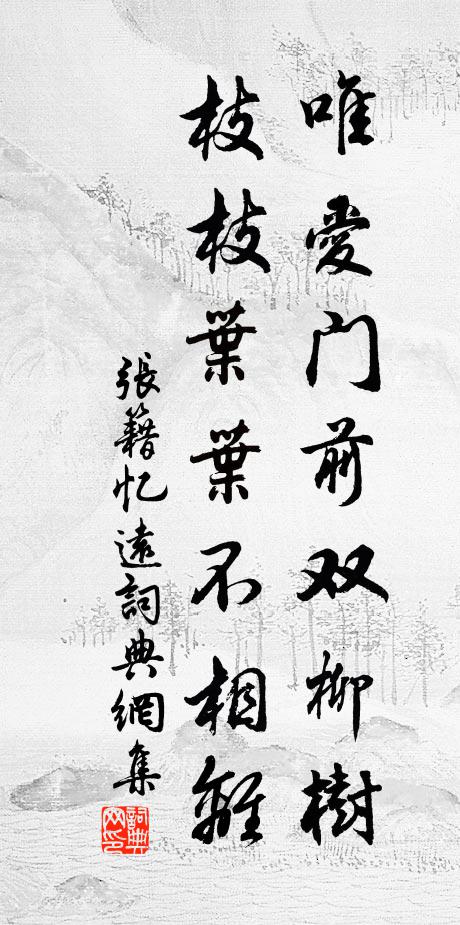 唯愛門前双柳樹
枝枝葉葉不相離
張籍忆遠詞典網集
詞典
网印